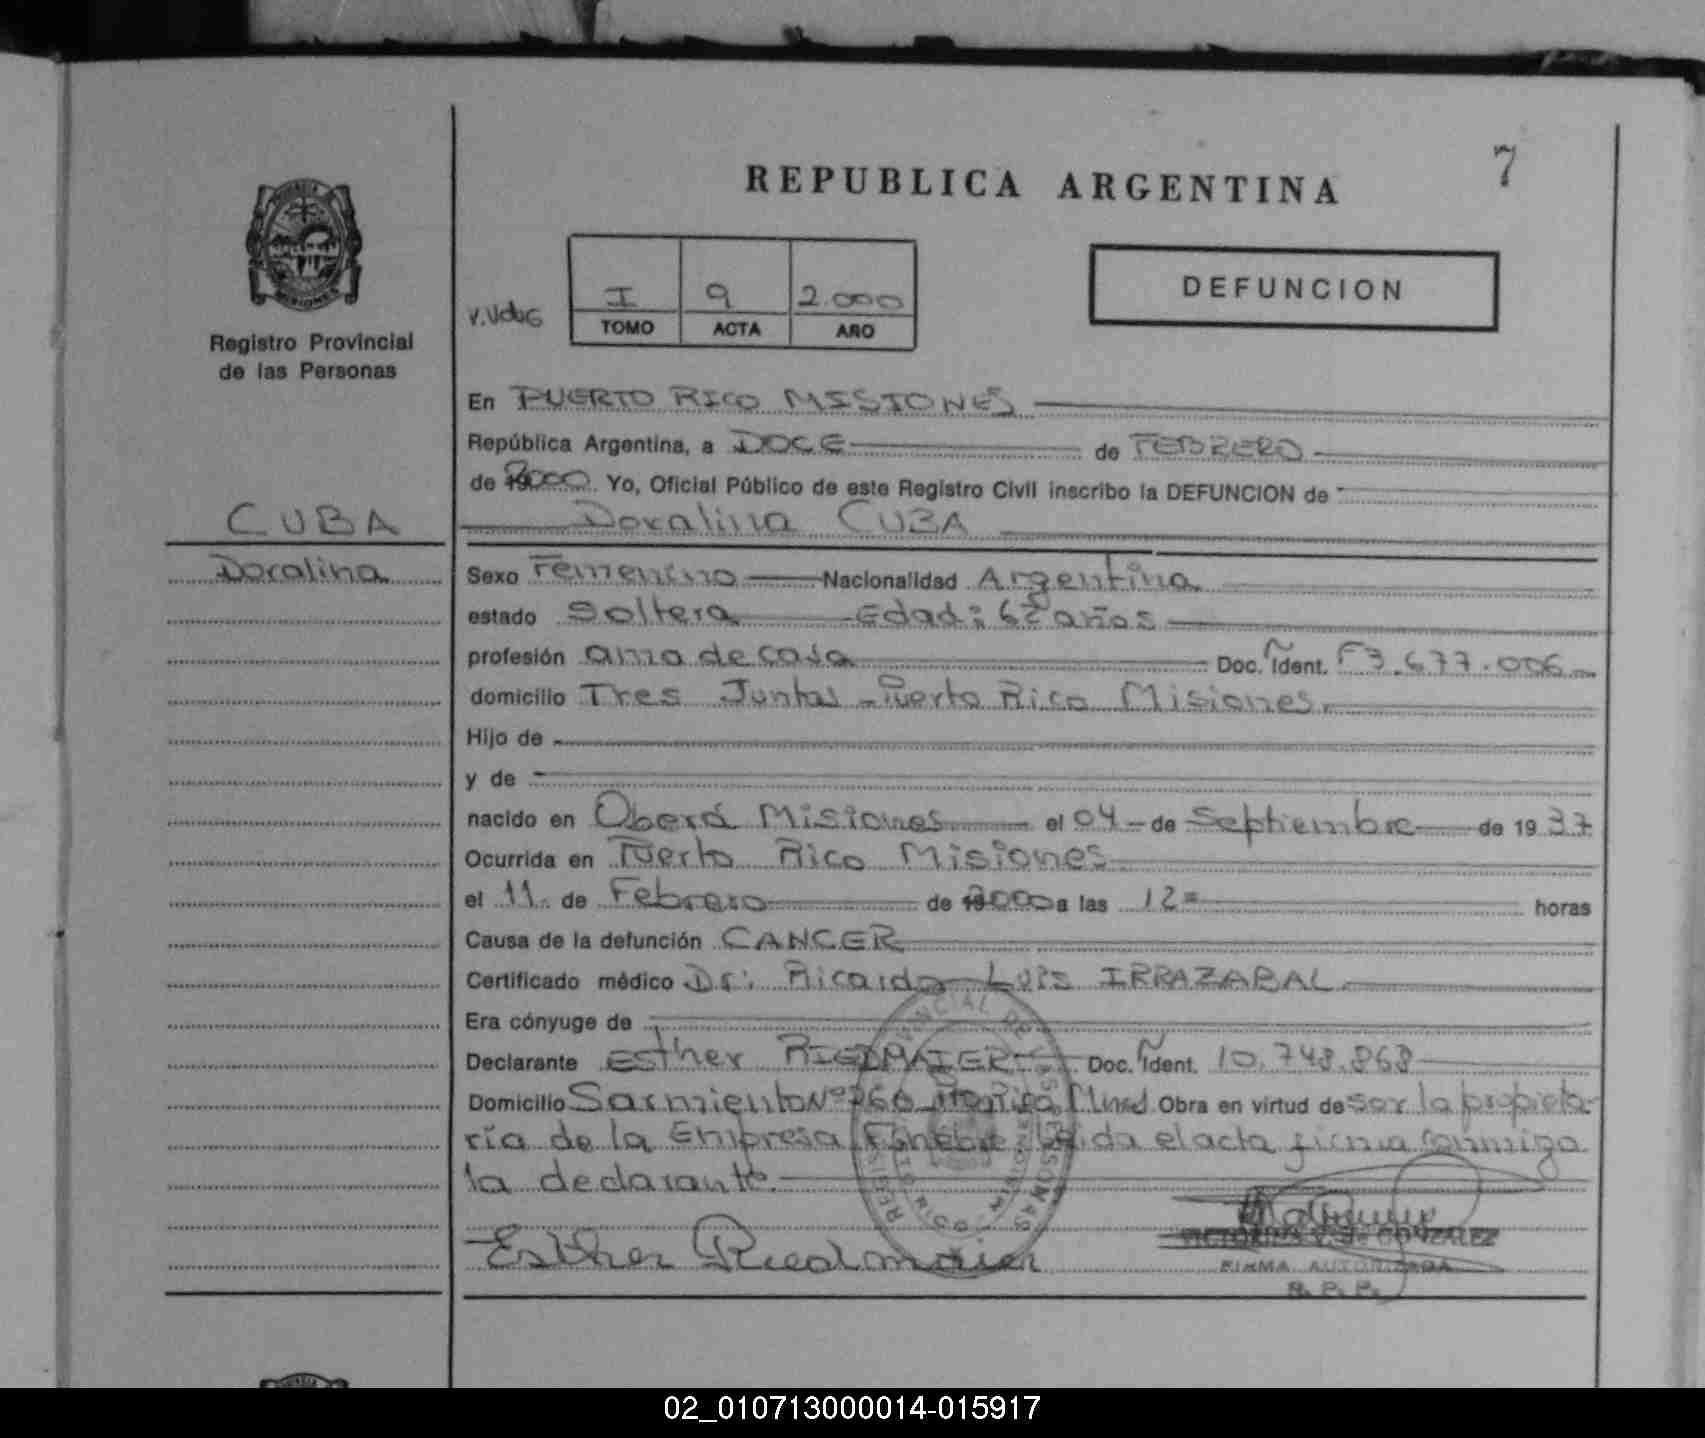 7
REPUBLICA ARGENTINA
DEFUNCION
I 9 2.000
TOMO ACTA AÑO
Registro Provincial
de las Personas
CUBA
Doralina
En PUERTO RICO MISIONES
República Argentina, a DOCE de FEBRERO
de 2000 Yo, Oficial Público de este Registro Civil inscribo la DEFUNCION de
Doralina CUBA
Sexo Femenino Nacionalidad Argentina
estado Soltera Edad: 62 años
profesión ama de casa Doc. Ident. F3.677.006
domicilio Tres Juntas - Puerto Rico Misiones.
Hijo de
y de
nacido en Oberá Misiones el 04 de Septiembre de 1937
Ocurrida en Puerto Rico Misiones
el 11 de Febrero de 2000 a las 12= horas
Causa de la defunción CANCER
Certificado médico Dr: Ricardo Luis IRRAZABAL
Era cónyuge de
Declarante Esther RIEDMAIER Doc. Ident. 10.748.868
Domicilio Sarmiento Nº 260 Pto Rico Mnes Obra en virtud de ser la propieta-
ría de la Empresa Fúnebre Leída el acta firma conmigo
la declarante.
Esther Riedmaier
VICTORINA V. de GONZALEZ
FIRMA AUTORIZADA
R. P. P.
02_010713000014-015917